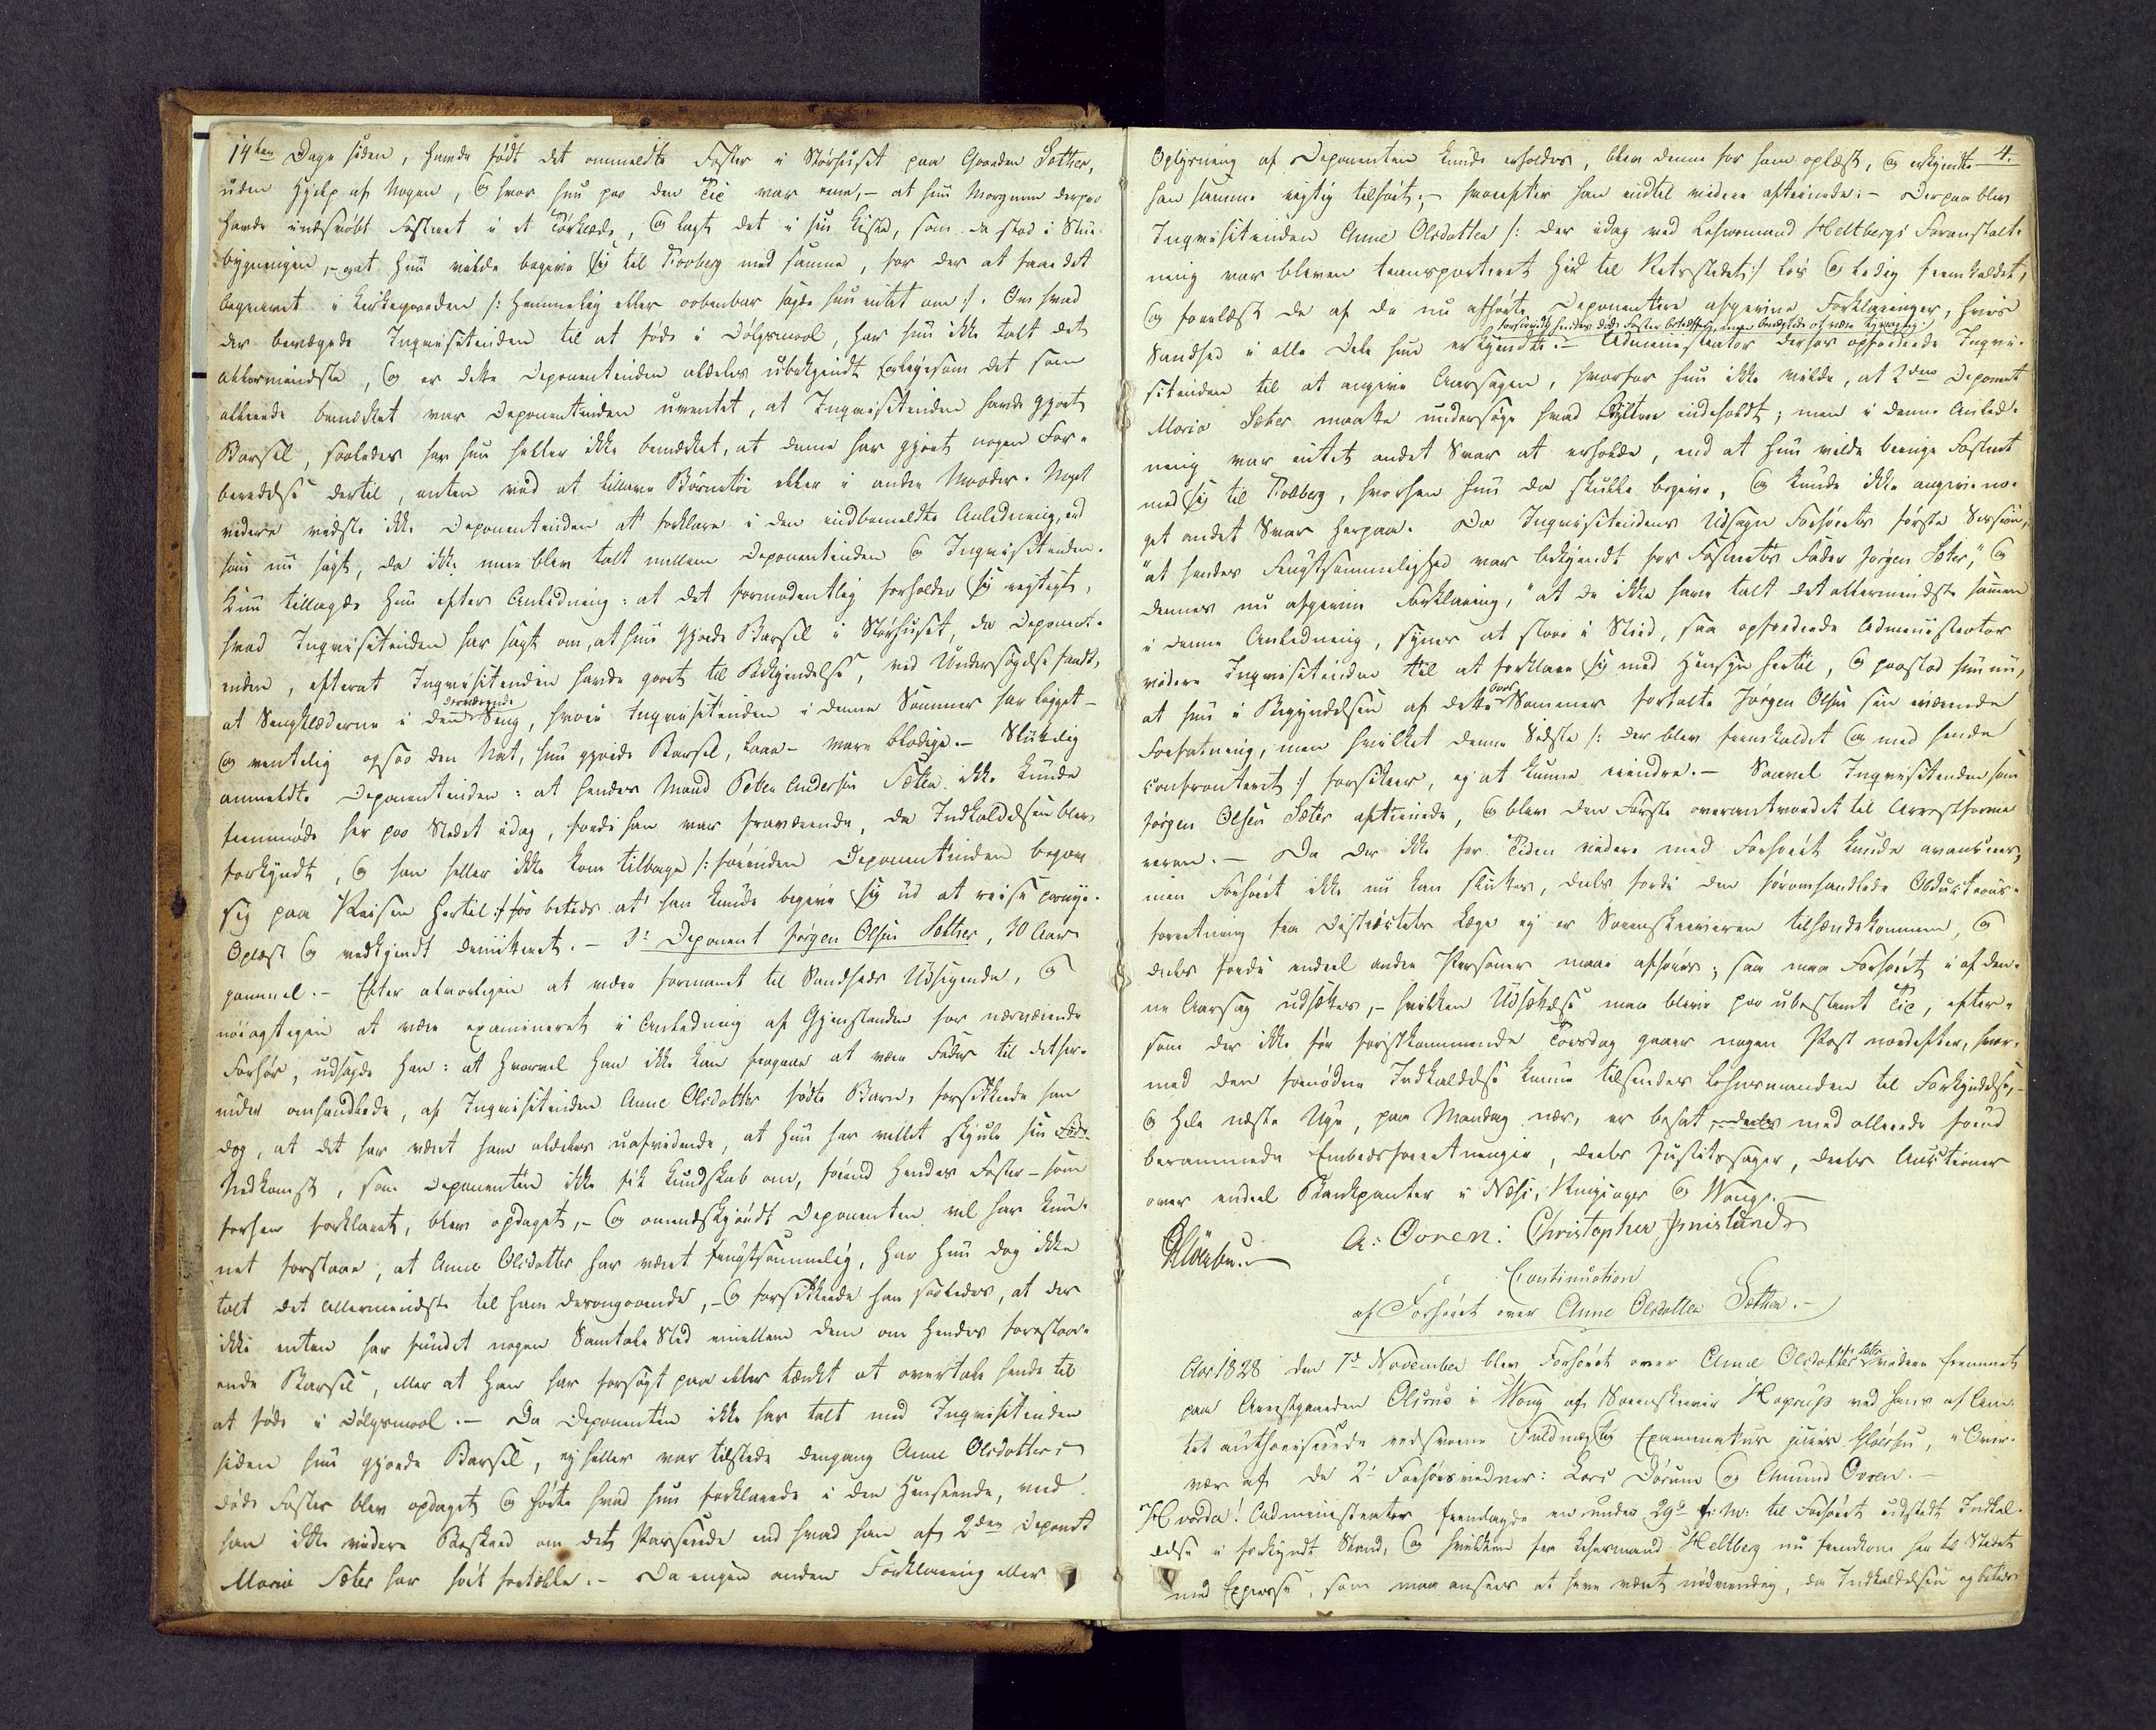 14ten Dage siden, havde födt det ommeldte Foster i Störhuset paa Gaarden Sætter,
uden Hjelp af Nogen, og hvor hun paa den Tid var ene, - at hun Morgenen derpaa
havde indsvöbt Fosteret i et Törklæde, og lagt det i sin Kiste, som da stod i Stue-
bygningen, - at hun vilde begive sig til Kolberg med samme, for der at faae det
begravet i Kirkegaarden /: hemmelig eller aabenbar sagde hun intet om :/. Om hvad
der bevægede Inqvisitinden til at föde i Dölgsmaal, har hun ikke talt det
allermindste, og er dette Deponentinden aldeles ubekjendt. Ligesom det som
allerede bemærket var Deponentinden uventet, at Inqvisitinden havde gjort
Barsel, saaledes har hun heller ikke bemærket, at denne har gjort nogen For-
beredelse dertil, enten ved at tillave Börnetöi eller i andre Maader. Noget
videre vidste ikke Deponentinden at forklare i den indbemeldte Anledning, end
som nu sagt, da ikke mere blev talt mellem Deponentinden og Inqvisitinden.
Kun tillagde hun efter Anledning: at det formodentlig forholder sig rigtigt,
hvad Inqvisitinden har sagt om, at hun gjorde Barsel i Störhuset, da Deponent-
inden, efterat Inqvisitinden havde gaaet til Bekjendelse, ved Undersögelse fandt,
at Sengklæderne i den derværende Seng, hvori Inqvisitinden i denne Sommer har ligget -
og ventelig ogsaa den Nat, hun gjorde Barsel, laae - vare blodige. - Slutelig
anmeldte Deponentinden: at hendes Mand Peder Andersen Sætter ikke kunde
fremmöde her paa Stedet idag, fordi han var fraværende, da Indkaldelsen blev
forkyndt, og han heller ikke kom tilbage /: forinden Deponentinden begav
sig paa Reisen hertil :/ saa betids at han kunde begive sig ud at reise
Oplæst og vedkjendt demitteret. - 3die Deponent Jörgen Olsen Sætter, 30 Aar
gammel. - Efter alvorligen at være formanet til Sandheds Udsigende, og
nöiagtigen at være examineret i Anledning af Gjenstanden for nærværende
Forhör, udsagde han: at hvorvel han ikke kan fragaae at være Fader til det her-
under omhandlede, af Inqvisitinden Anne Olsdatter födte Barn, forsikkrede han
dog, at det har været ham aldeles uafvidende, at hun har villet skjule sin
Nedkomst, som Deponenten ikke fik Kundskab om, förend hendes Foster - som
forhen forklaret, blev opdaget, - og omendskjöndt Deponenten vel har kun-
net forstaae, at Anne Olsdatter har været frugtsommelig, har hun dog ikke
talt det allermindste til ham desangaaende, - og forsikkrede han saaledes, at der
ikke enten har fundet nogen Samtale Sted imellem dem om hendes forestaa-
ende Barsel, eller at han har forsögt paa eller tænkt at overtale hende til
at föde i Dölgsmaal. - Da Deponenten ikke har talt med Inqvisitinden
siden hun gjorde Barsel, ei heller var tilstede dengang Anne Olsdatters
döde Foster blev opdaget og hörte hvad hun forklarede i den Henseende, ved
han ikke videre Beskeed om det Passerede end hvad han af 2den Deponent
Maria Sæter har hört fortælle. - Da ingen anden Forklaring eller
4.
Oplysning af Deponenten kunde erholdes, blev denne for ham oplæst, og erkjendte
han samme rigtig tilfört, - hvorefter han indtil videre aftraadte. - Derpaa blev
Inqvisitinden Anne Olsdatter /: der idag ved Lehnsmand Heltbergs Foranstalt-
ning var bleven transporteret hid til Retsstedet :/ lös og ledig fremkaldet,
og forelæst de af de nu afhörte Deponenter afgivne Forklaringer, hvis
forsaavidt hendes döde Foster betræffer, men benægtede at være
Sandhed i alle Dele hun erkjendte. - Administrator derfor opfordrede Inqvi-
sitinden til at angive Aarsagen, hvorfor hun ikke vilde, at 2den Deponent
Maria Sæter maatte undersöge hvad Bylten indeholdt; men i denne Anled-
ning var intet andet Svar at erholde, end at hun vilde bringe Fosteret
med sig til Kolberg, hvorhen hun da skulle begive, og kunde ikke angive no-
get andet Svar herpaa. Da Inqvisitindens Udsagn Forhörets förste Session,
"at hendes Frugtsommelighed var bekjendt for Fosterets Fader Jörgen Sæter," og
dennes nu afgivne Forklaring, "at de ikke have talt det allermindste sammen
i denne Anledning, synes at staae i Strid, saa opfordrede Administrator
videre Inqvisitinden til at forklare sig med Hensyn hertil, og paastod hun nu,
at hun i Begyndelsen af dette Aars Sommer fortalte Jörgen Olsen sin værende
Forfatning, men hvilket denne Sidste /: der blev fremkaldet og med hende
confronteret :/ forsikkrer, ej at kunne erindre. - Saavel Inqvisitinden som
Jörgen Olsen Sæter aftraadte, og blev den Förste overantvordet til Arrestforva-
reren. - Da der ikke for Tiden videre med Forhöret kunde avanceres,
men Forhöret ikke nu kan sluttes, deels fordi den föromhandlede Obductions-
forretning fra Districtets Læge ei er Sorenskriveren tilhændekommen, og
deels fordi endeel andre Personer maae afhöres; saa maa Forhöret i af den-
ne Aarsag udsættes, - hvilken Udsættelse maa blive paa ubestemt Tid, efter-
som der ikke för förstkommende Torsdag gaaer nogen Post nordefter, hvor-
med den fornödne Indkaldelse kunne tilsendes Lehnsmanden til Forkyndelse, -
og hele næste Uge, paa Mandag nær, er besat med allerede forud
berammede Embedsforretninger, deels Justitssager, deels Auctioner
over endeel Bankpanter i Næss, Ringsager og Wang. -
A: Ovren: Christopher Jmislund
Continuation
af Forhöret over Anne Olsdatter Sætter. -
Aar 1828 den 7de November blev Forhöret over Anne Olsdatter Sæter videre fremmet
paa Arrestgaarden Olsrud i Wang af Sorenskriver Hoyrup ved hans af Am-
tet authoriserede edsvorne Fuldmægtig Examinatus juris , i Over-
vær af de 2de Forhörsvidner: Lars Dörum og Amund Ovren. -
Administrator fremlagde en under 29de f: M: til Forhöret udstedt Indkal-
delse i forkyndt Stand, og hvilken fra Lehnsmand Heltberg nu fremkom her til Stedet
med Expresse, som maa ansees at have været nödvendig, da Indkaldelsen ej betids